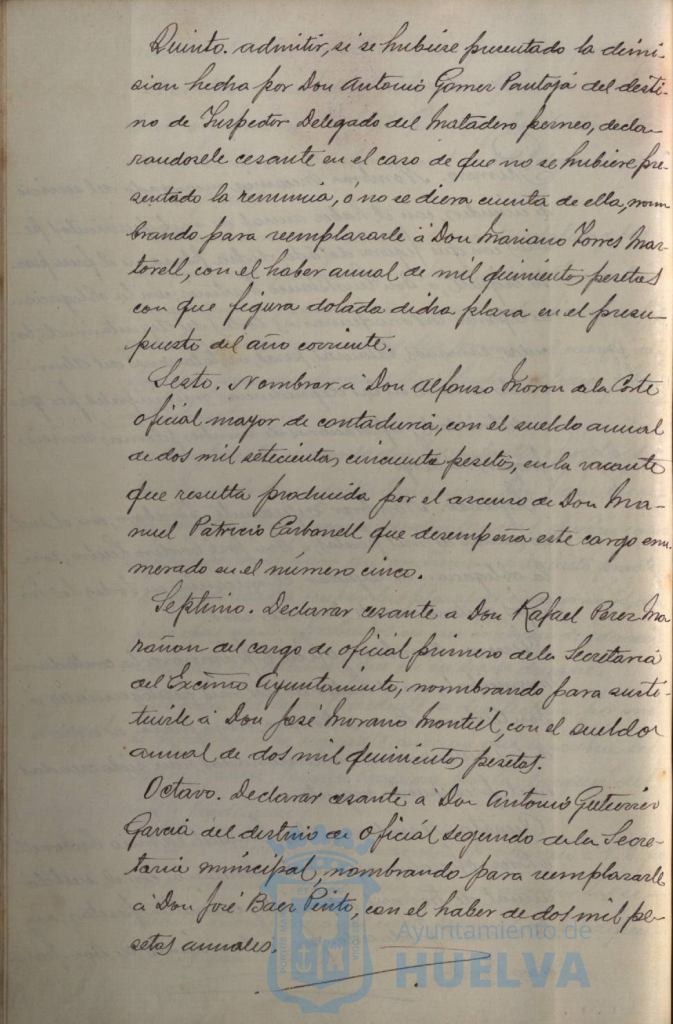 Quinto. admitir, si se hubiese presentado la dimi-
sion hecha por Don Antonio Gomez Pantoja del desti-
no de Inspector Delegado del Matadero perneo, decla-
randosele cesante en el caso de que no se hubiere pre-
sentado la renuncia, ó no se diera cuenta de ella, nom
brando para reemplazarle á Don Mariano Torres Mar-
torell, con el haber anual de mil quinientas pesetas
con que figura dotada dicha plaza en el presu
puesto del año corriente.
Sesto. Nombrar á Don Alfonso Moron de la Corte
oficial mayor de contaduria, con el sueldo anual
de dos mil setecientas cincuenta pesetas, en la vacante
que resulta producida por el ascenso de Don Ma-
nuel Patricio Carbonell que desempeña este cargo enu
merado en el número cinco.
Septimo. Declarar cesante a Don Rafael Perez Ma
rañon del cargo de oficial primero de la Secretaria
del Excmo Ayuntamiento, nombrando para susti-
tuirle á Don José Morano Montiel, con el sueldo
anual de dos mil quinientas pesetas.
Octavo. Declarar cesante á Don Antonio Gutierrez
Garcia del destino de Oficial segundo de la Secre-
taria municipal, nombrando para reemplazarle
á Don José Baez Pinto, con el haber de dos mil pe-
setas anuales.
Ayuntamiento de
HUELVA